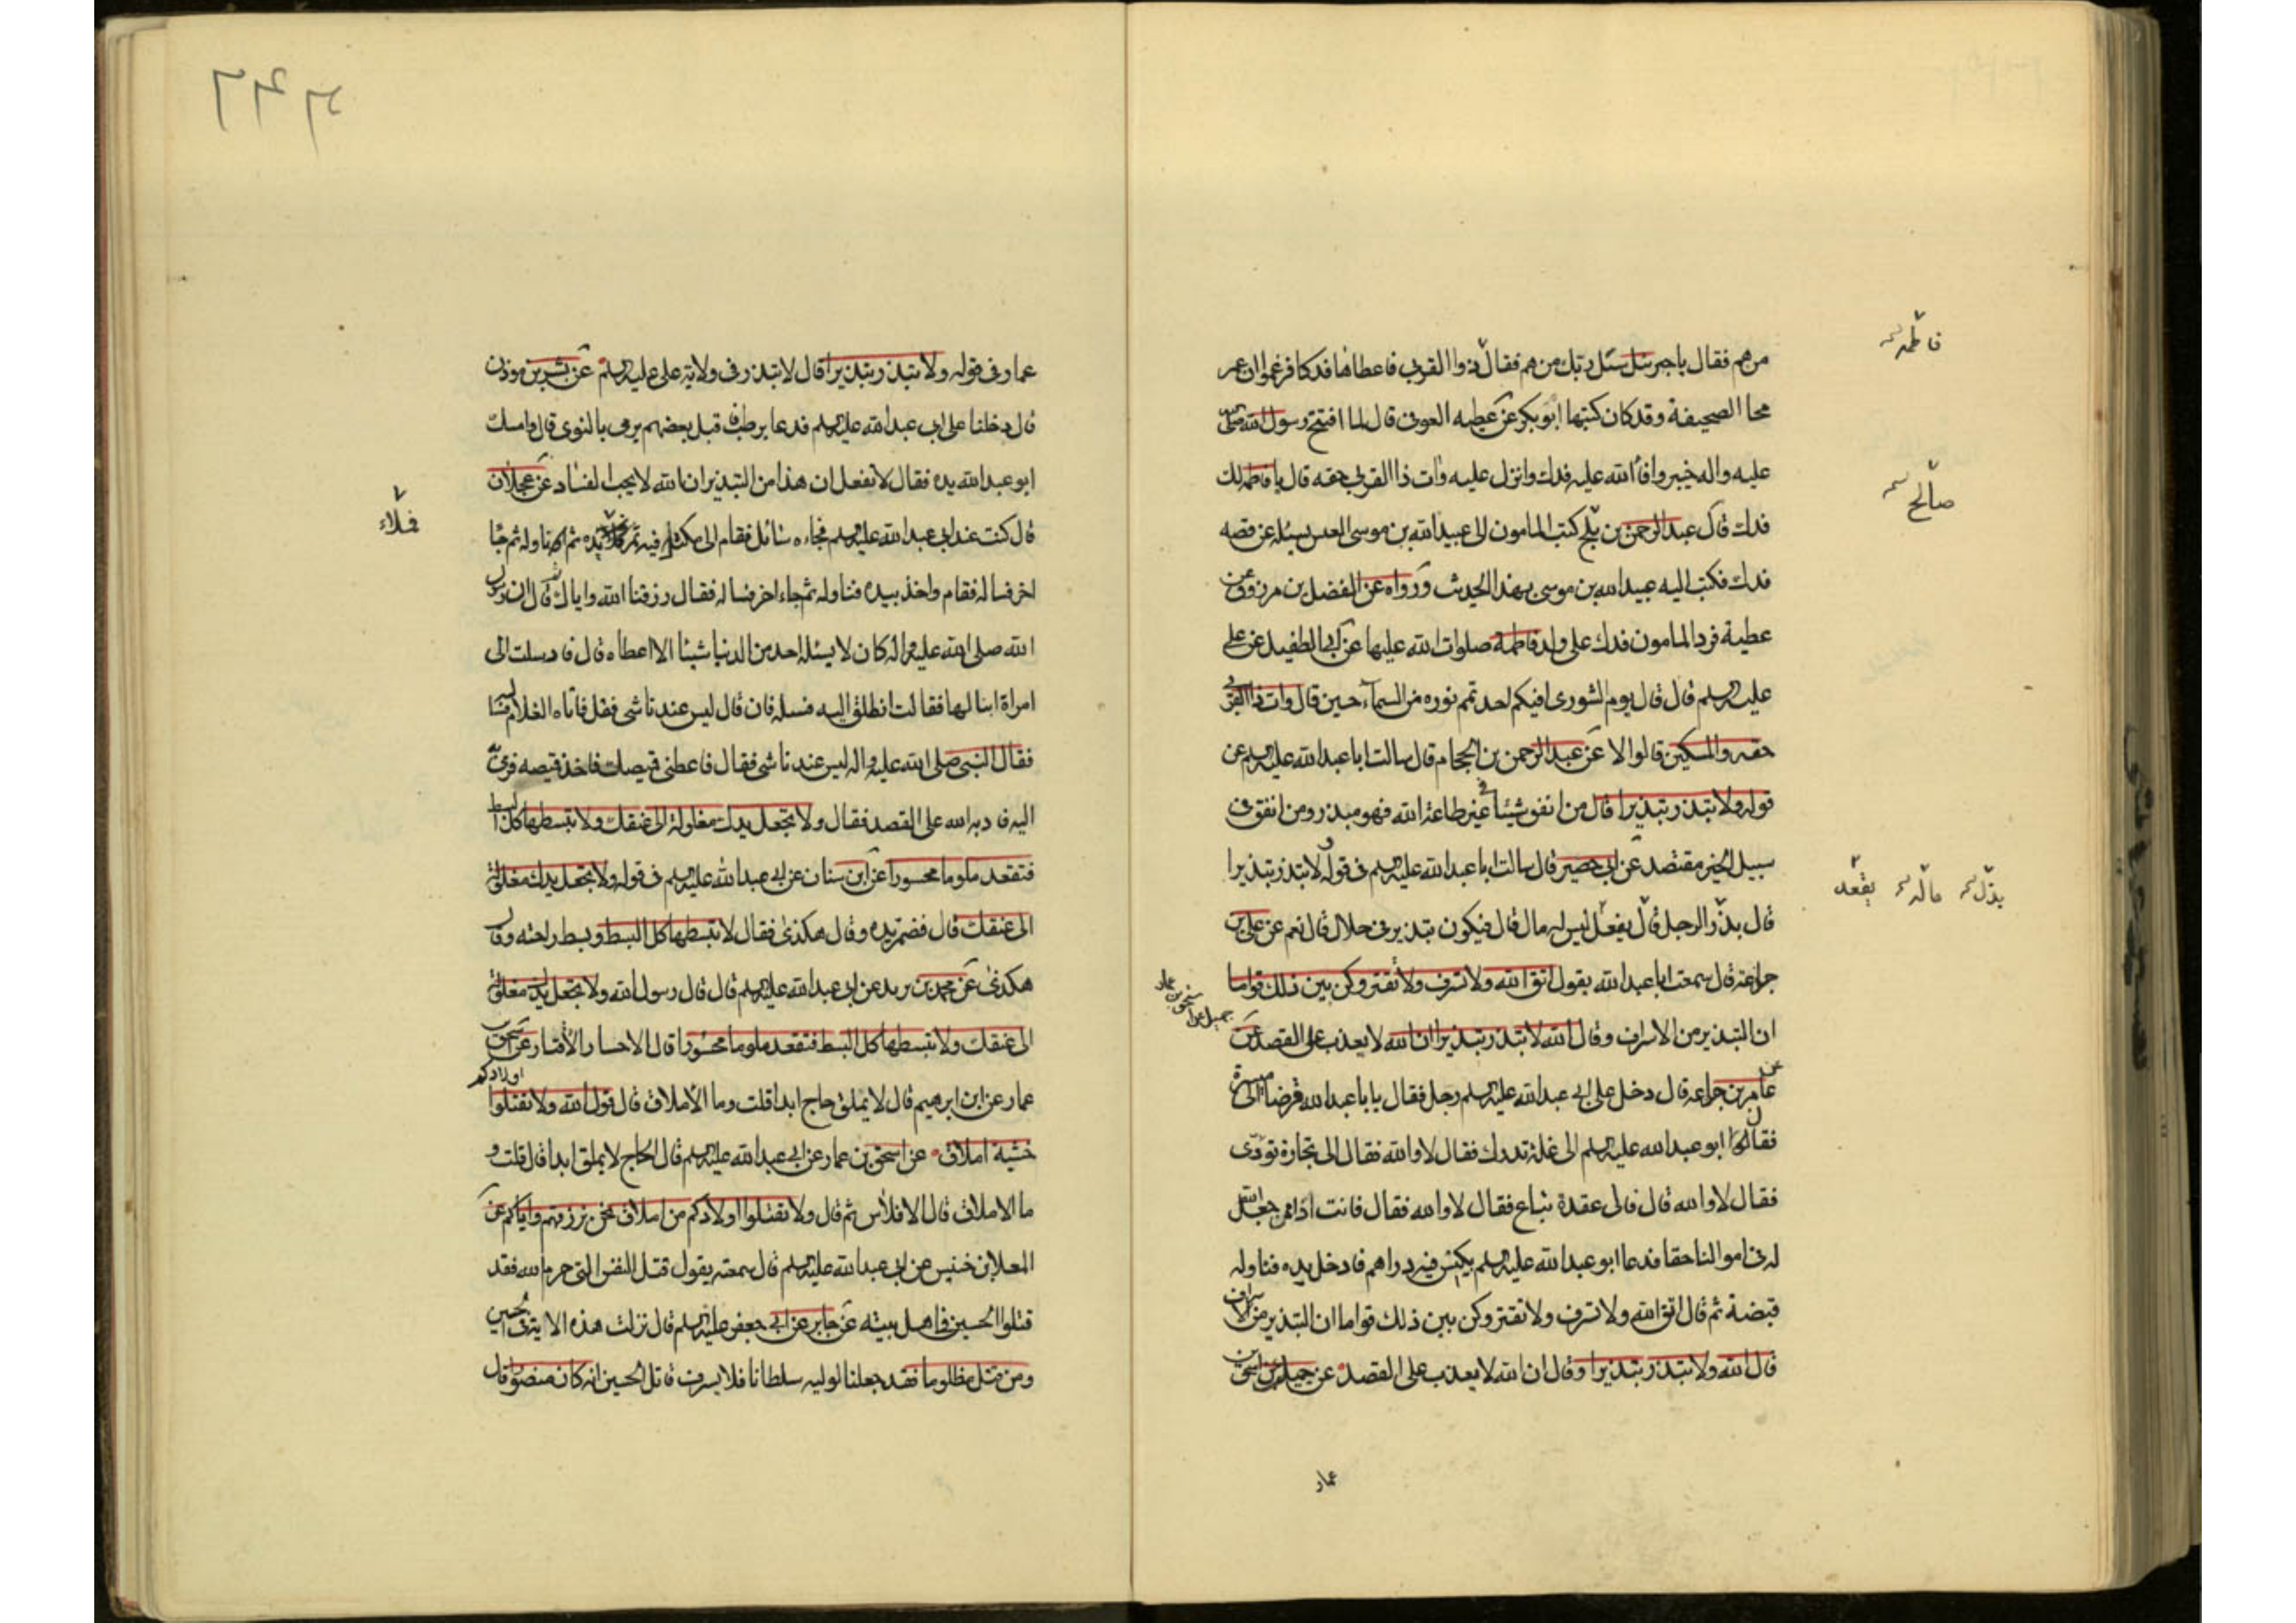 من هم فقال يا جبرئيل سئل ربك من هم فقال ذوا القربى فاعطاها فدكا فزعموا ان عمر
محا الصحيفة وقد كان كتبها ابو بكر عن عطيه العوفى قال لما افتتح رسول الله صلى
عليه واله خيبر وافاء الله عليه فدك وانزل عليه وات ذا القربى حقه قال يا فاطمه لك
فدك قال عبد الرحمن بن كتب المامون الى عبيد الله بن موسى العبسى يسئله عن قصه
فدك فكتب اليه عبيد الله بن موسى بهذا الحديث ورواه عن الفضل بن مرزوق عن
عطية فرد المامون فدك على ولد فاطمة صلوات الله عليها عن ابى الطفيل عن على
عليه السلم قال قال يوم الشورى افيكم احد تمم نوره من السماء حين قال وات ذا القربى
حقه والمسكين قالوا لا عن عبد الرحمن بن الحجاج قال سالت ابا عبد الله عليه السلم عن
قوله ولا تبذر تبذيرا قال من انفق شيئا فى غير طاعة الله فهو مبذر ومن انفق فى
سبيل الخير مقتصد عن ابى بصير قال سالت ابا عبد الله عليه السلم فى قوله ولا تبذر تبذيرا
قال بذر الرجل قال يفعل ليس له مال قال فيكون تبذير فى حلال قال نعم عن على بن
جزاعة قال سمعت ابا عبد الله يقول اتق الله ولا تسرف ولا تقتر وكن بين ذلك قواما
ان التبذير من الاسراف وقال الله لا تبذر تبذيرا ان الله لا يعذب على القصد عن
عامر بن جزاعه قال دخل على ابى عبد الله عليه السلم رجل فقال يا با عبد الله قرضا الى ميسرة
فقال له ابو عبد الله عليه السلم الى غلة تدرك فقال لا والله فقال الى تجارة تؤدى
فقال لا والله قال فالى عقدة تباع فقال لا والله فقال فانت اذا ممن جعل الله
له فى اموالنا حقا فدعا ابو عبد الله عليه السلم بكيس فيه دراهم فادخل يده فناوله
قبضة ثم قال اتق الله ولا تسرف ولا تقتر وكن بين ذلك قواما ان التبذير من الاسراف
قال الله ولا تبذر تبذيرا وقال ان الله لا يعذب على القصد عن جميل عن اسحق بن
عمار
فاطمة
صالح
بذل ماله يقعد
جميل عن اسحق بن عمار
عمار فى قوله ولا تبذر تبذيرا قال لا تبذر فى ولاية على عليه السلم عن بشر بن مروان
قال دخلنا على ابى عبد الله عليه السلم فدعا برطب فاقبل بعضهم يرمى بالنوى قال وامسك
ابو عبد الله يده فقال لا تفعل ان هذا من التبذير ان الله لا يحب الفساد عن عجلان
قال كنت عند ابى عبد الله عليه السلم فجاءه سائل فقام الى مكتل فيه تمر يده ثم ناوله ثم جا
اخر فساله فقام واخذ بيده فناوله ثم جاء اخر فساله فقال رزقنا الله واياك ثم قال ان رسول
الله صلى الله عليه واله كان لا يسئله احد من الدنيا شيئا الا اعطاه قال فارسلت الى
امراة ابنا لها فقالت انطلق اليه فسئله فان قال ليس عندنا شى فقل فاتاه الغلام فسا
فقال النبى صلى الله عليه واله ليس عندنا شى فقال فاعطنى قميصك فاخذ قميصه فرمى به
اليه فادبه الله على القصد فقال ولا تجعل يدك مغلولة الى عنقك ولا تبسطها كل البسط
فتقعد ملوما محسورا عن ابن سنان عن ابى عبد الله عليه السلم فى قوله ولا تجعل يدك مغلولة
الى عنقك قال فضم يده وقال هكذى فقال لا تبسطها كل البسط وبسط راحته وقال
هكذى عن محمد بن يزيد عن ابى عبد الله عليه السلم قال قال رسول الله ولا تجعل يدك مغلولة
الى عنقك ولا تبسطها كل البسط فتقعد ملوما محسورا قال الاحسار الاقتار عن اسحق بن
عمار عن ابن ابرهيم قال لا يملق حاج ابدا قلت وما الاملاق قال قول الله ولا تقتلوا اولادكم
خشية املاق عن اسحق بن عمار عن ابى عبد الله عليه السلم قال الحاج لا يملق ابدا قال قلت و
ما الاملاق قال الافلاس ثم قال ولا تقتلوا اولادكم من املاق نحن نرزقهم واياكم عن
المعلا بن خنيس عن ابى عبد الله عليه السلم قال سمعته يقول قتل النفس التى حرم الله فقد
قتلوا الحسين فى اهل بيته عن جابر عن ابى جعفر عليه السلم قال نزلت هذه الاية فى الحسين
ومن قتل مظلوما فقد جعلنا لوليه سلطانا فلا يسرف قاتل الحسين انه كان منصورا قال